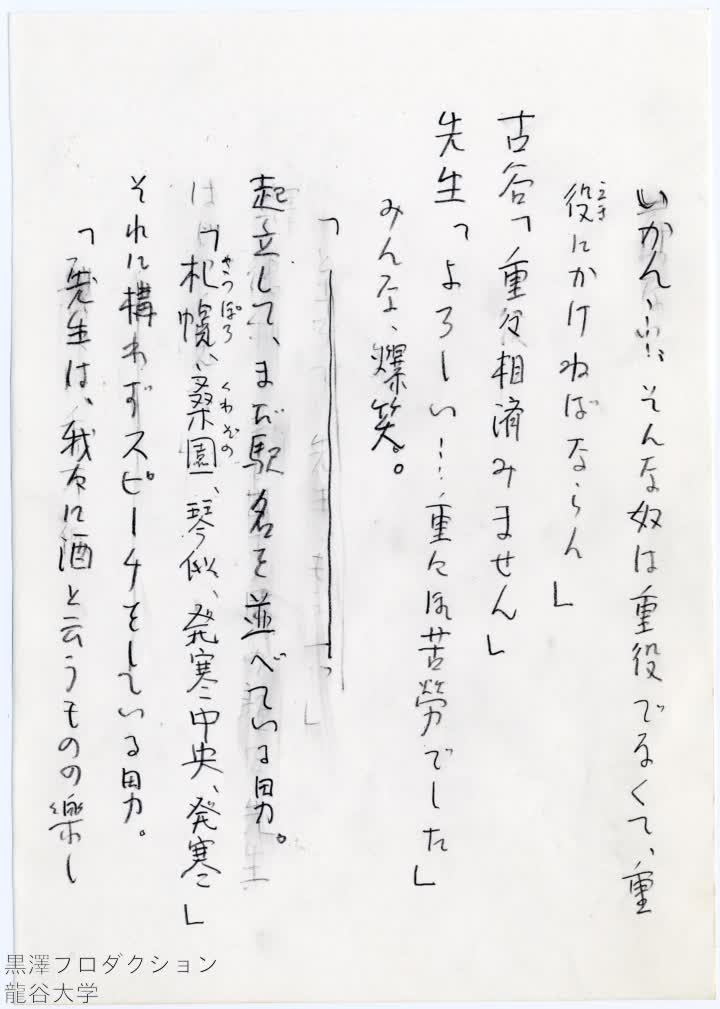 いかん…… そんな奴は重役でなくて、重
役にかけねばならん」
古谷「重役相済みません」
先生「よろしい…重々御苦労でした」
みんな、爆笑。
起立して、まだ駅名を並べている男。
「札幌、桑園、琴似、発寒中央、発寒」
さっぽろ くわぞの
それに構わずスピーチをしている男。
「先生は、我々に酒と云うものの楽し
黒澤プロダクション
龍谷大学